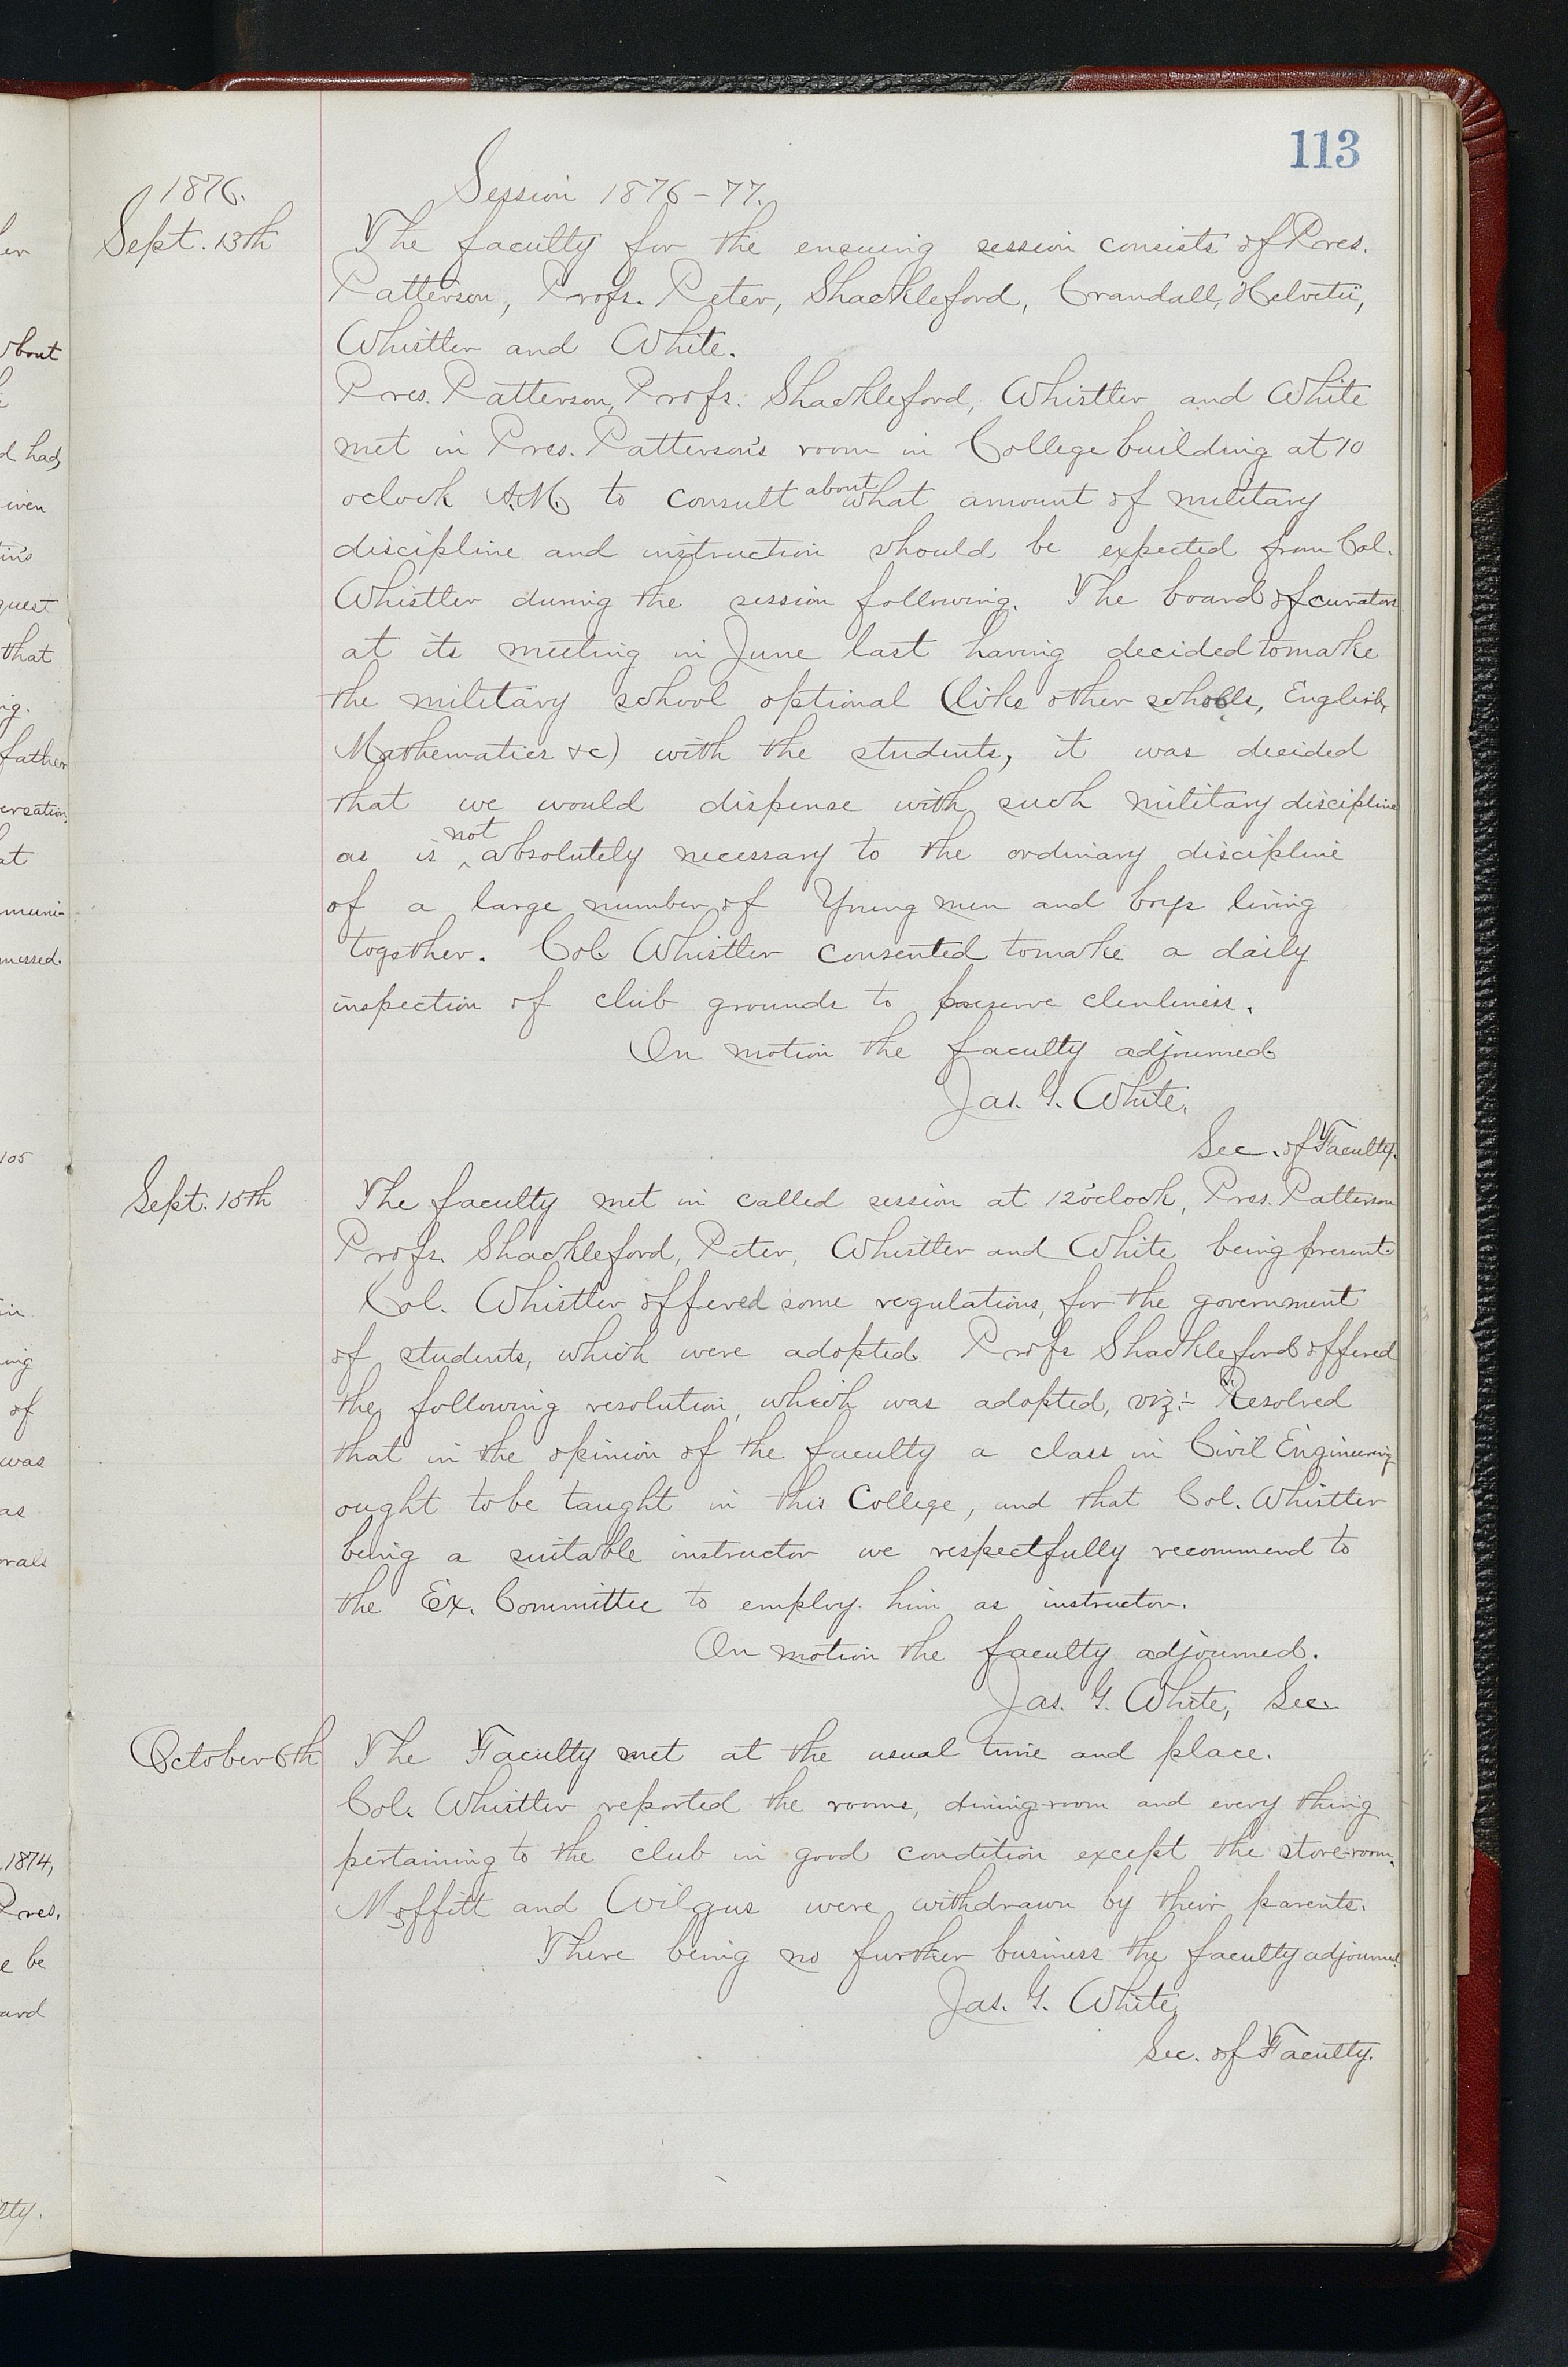 113
1876.
Session 1876-77.
Sept. 13th
The faculty for the ensuing session consists of Pres.
Patterson, Profs. Peter, Shackleford, Crandall, Helveti,
Whistler and White.
Pres. Patterson, Profs. Shackleford, Whistler and White
met in Pres. Patterson's room in College building at 10
oclock A.M. to consult about what amount of military
discipline and instruction should be expected from Col.
Whistler during the session following. The board of curators
at its meeting in June last having decided to make
the military school optional (like other schools, English,
Mathematics &c) with the students, it was decided
that we would dispense with such military discipline
as is not absolutely necessary to the ordinary discipline
of a large number of Young men and boys living
together. Col. Whistler consented to make a daily
inspection of club grounds to preserve clenliness.
On motion the faculty adjourned
Jas. G. White,
Sec. of Faculty.
Sept. 15th
The faculty met in called session at 12 o'clock, Pres. Patterson
Profs. Shackleford, Peter, Whistler and White being present.
Col. Whistler offered some regulations, for the government
of students, which were adopted. Profs Shackleford offered
the following resolution, which was adopted, viz:- "Resolved
that in the opinion of the faculty a class in Civil Engineering
ought to be taught in this College, and that Col. Whistler
being a suitable instructor we respectfully recommend to
the Ex. Committee to employ him as instructor.
On motion the faculty adjourned.
Jas. G. White, Sec.
October 6th
The Faculty met at the usual time and place.
Col. Whistler reported the rooms, dining-room and every thing
pertaining to the club in good condition except the store-room.
Moffitt and Wilgus were withdrawn by their parents.
There being no further business the faculty adjourned.
Jas. G. White,
Sec. of Faculty.